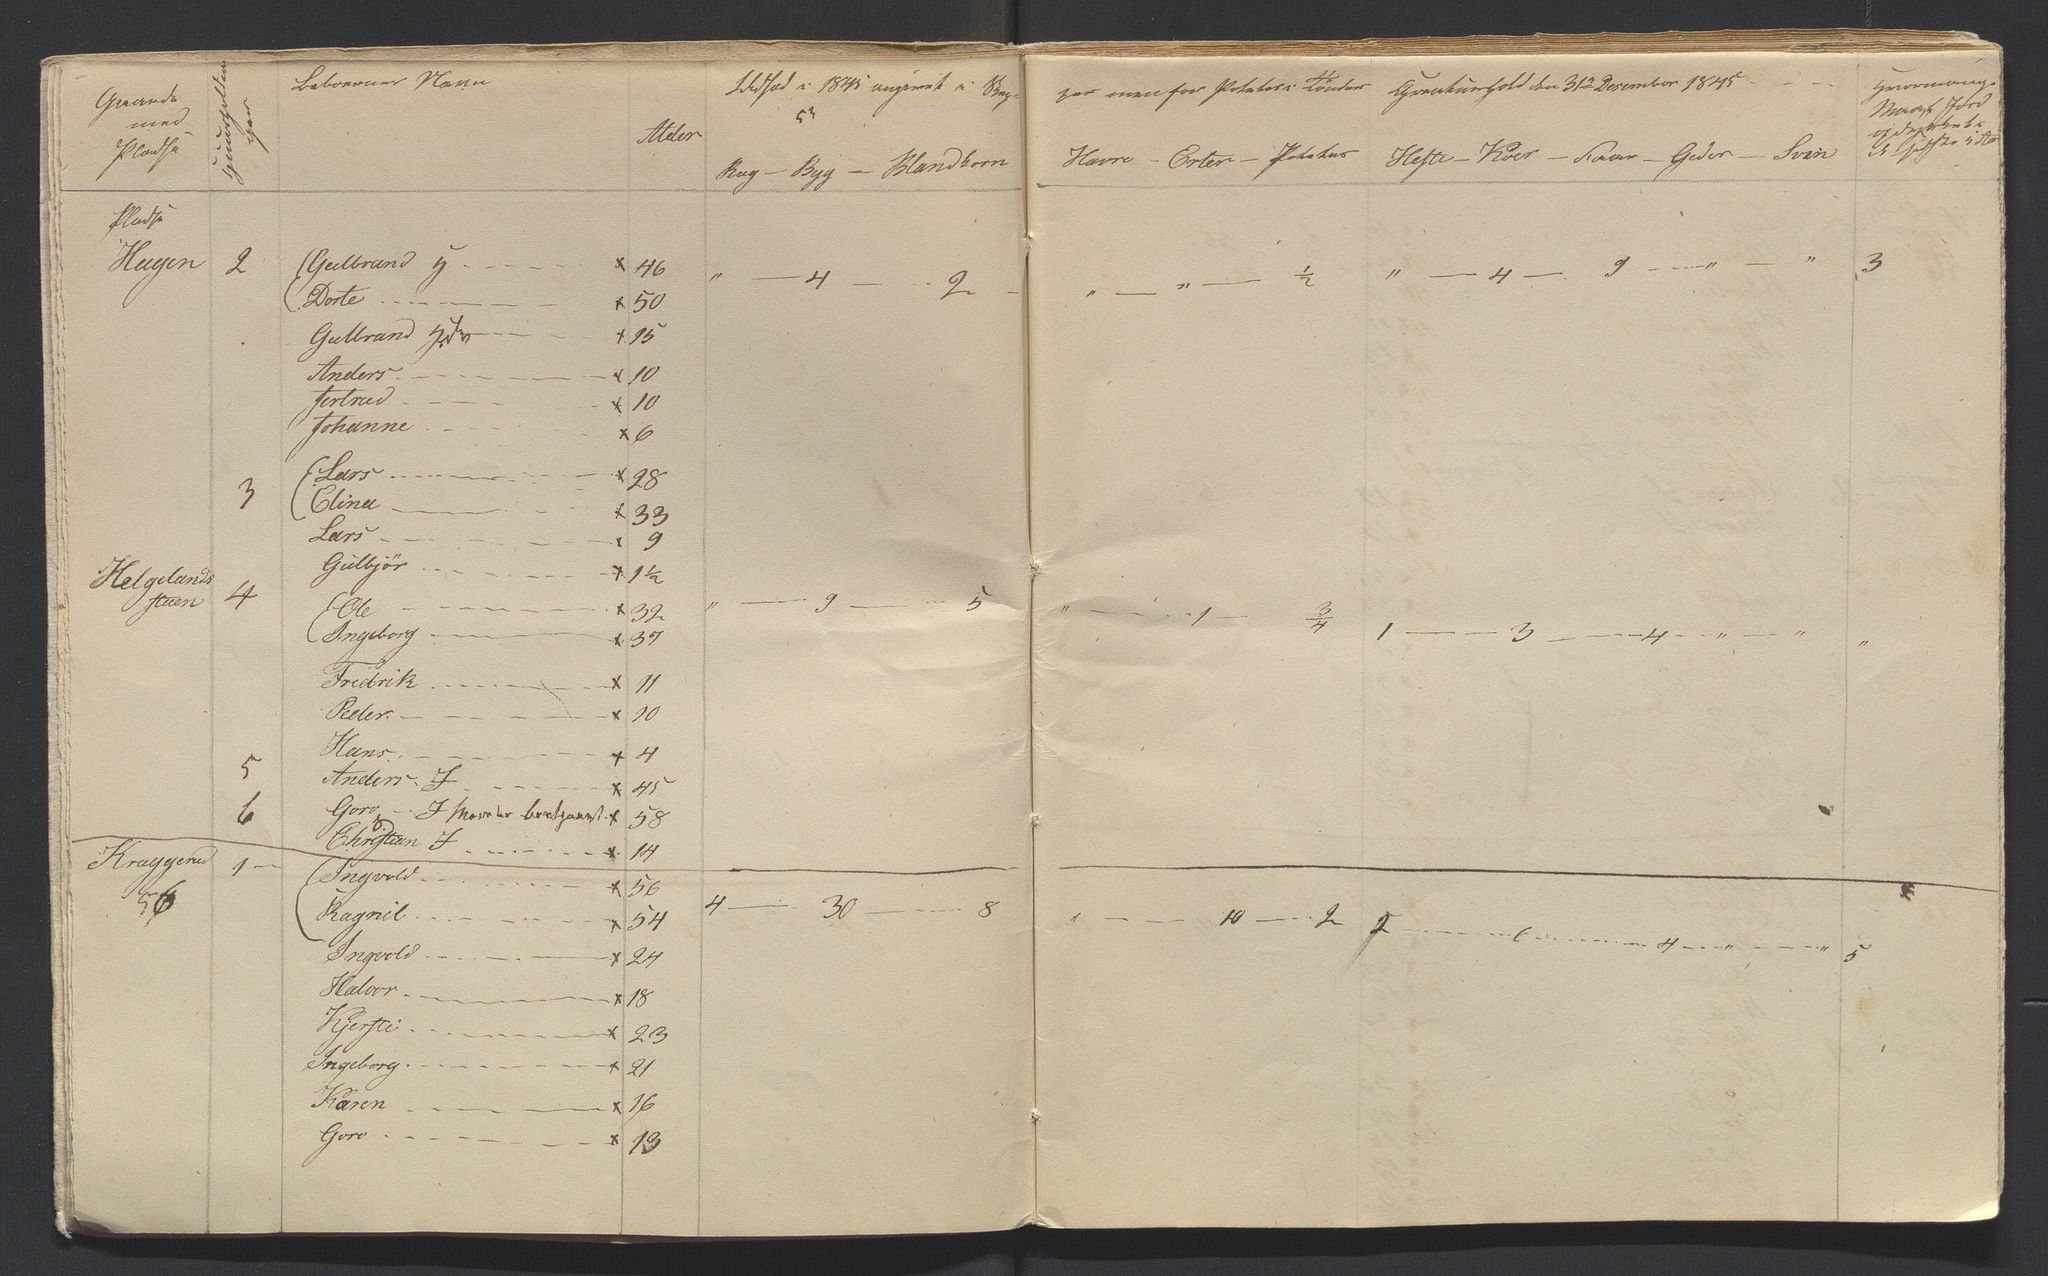 Gaarde med Pladse
Huusholdninger
Beboernes Navn
Alder
Udsæd i 1845 angivet i Skjep-
per men for Poteter i Tönder
Rug - Byg - Blandkorn
Havre - Erter - Potetus
Creaturhold den 31te Desember 1845
Heste - Köer - Faar - Geder - Svin
Pladse
Hagen 2 Gulbrand x 46 " 4 2 " " 1/2 " 4 9 " " 3
Dorte x 50
Gulbrand x 15
Anders x 10
Jertrud x 10
Johanne x 6
3 Lars x 28
Elina x 33
Lars x 9
Gulbjör x 1 1/2
Helgelands stuen 4 Ole x 32 " 9 5 " 1 3/4 1 3 4 " " "
Ingeborg x 37
Fredrik x 11
Peder x 10
Hans x 4
5 Anders J x 45
6 Goro J x 58
Christian J x 14
Kraggerud 1 Ingvold x 56 4 30 8 " 10 2 2 6 4 " " 5
56 Ragnil x 54
Ingvold x 24
Halvor x 18
Kjersti x 23
Ingeborg x 21
Karen x 16
Goro x 13